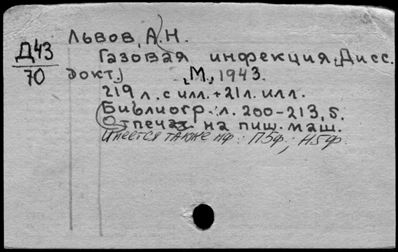 Львов, А.Н.
Д43
70
Газовая инфекция, Дисс.
докт.) М., 1943.
219 л. с илл. + 21 л. илл.
(Библиогр.: л. 200-213, 5.
Отпеч. на пиш. маш.
Имеется также мф.: П5ф.;